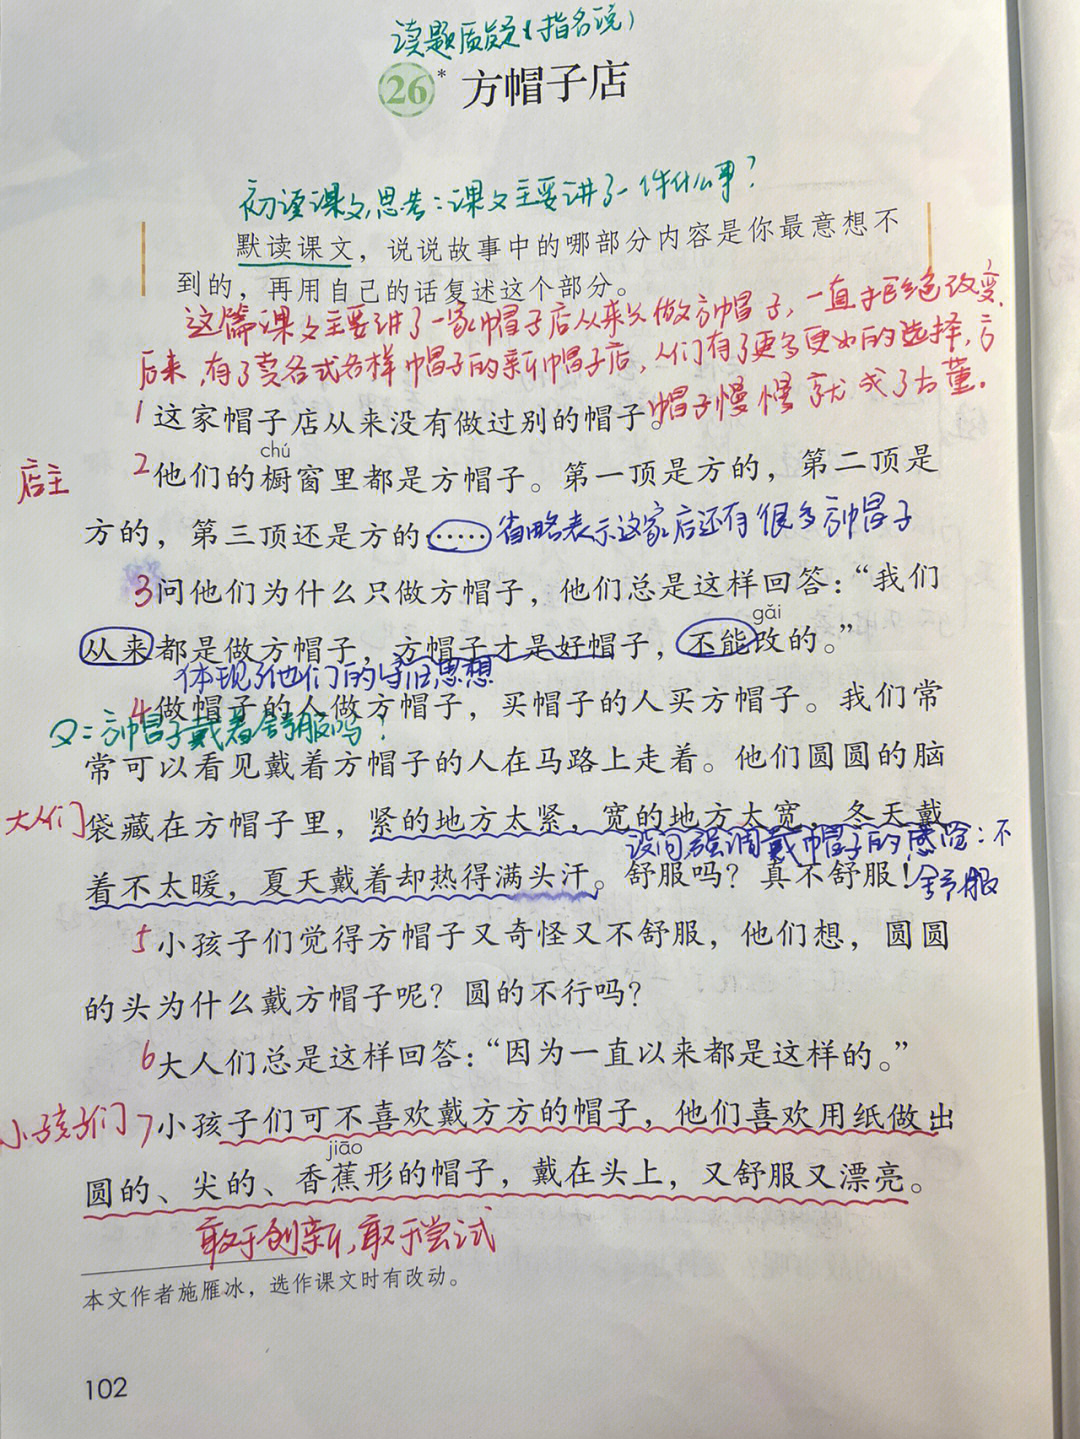 读题质疑(指名说)
26* 方帽子店
初读课文,思考:课文主要讲了一件什么事?
默读课文，说说故事中的哪部分内容是你最意想不
到的，再用自己的话复述这个部分。
这篇课文主要讲了一家帽子店从来只做方帽子，一直拒绝改变.
后来,有了卖各式各样帽子的新帽子店，人们有了更多更好的选择,方
帽子慢慢就成了古董.
1 这家帽子店从来没有做过别的帽子。
chú
店主
2 他们的橱窗里都是方帽子。第一顶是方的，第二顶是
方的，第三顶还是方的…… 省略表示这家店还有很多方帽子
3 问他们为什么只做方帽子，他们总是这样回答：“我们
gǎi
从来都是做方帽子，方帽子才是好帽子，不能改的。”
体现了他们的守旧思想
4 做帽子的人做方帽子，买帽子的人买方帽子。我们常
Q:方帽子戴着舒服吗?
常可以看见戴着方帽子的人在马路上走着。他们圆圆的脑
大人们
袋藏在方帽子里，紧的地方太紧，宽的地方太宽，冬天戴
设问强调戴帽子的感险:不
舒服
着不太暖，夏天戴着却热得满头汗。舒服吗？真不舒服！
5 小孩子们觉得方帽子又奇怪又不舒服，他们想，圆圆
的头为什么戴方帽子呢？圆的不行吗？
6 大人们总是这样回答：“因为一直以来都是这样的。”
小孩子们
7 小孩子们可不喜欢戴方方的帽子，他们喜欢用纸做出
jiāo
圆的、尖的、香蕉形的帽子，戴在头上，又舒服又漂亮。
敢于创新,敢于尝试
本文作者施雁冰，选作课文时有改动。
102